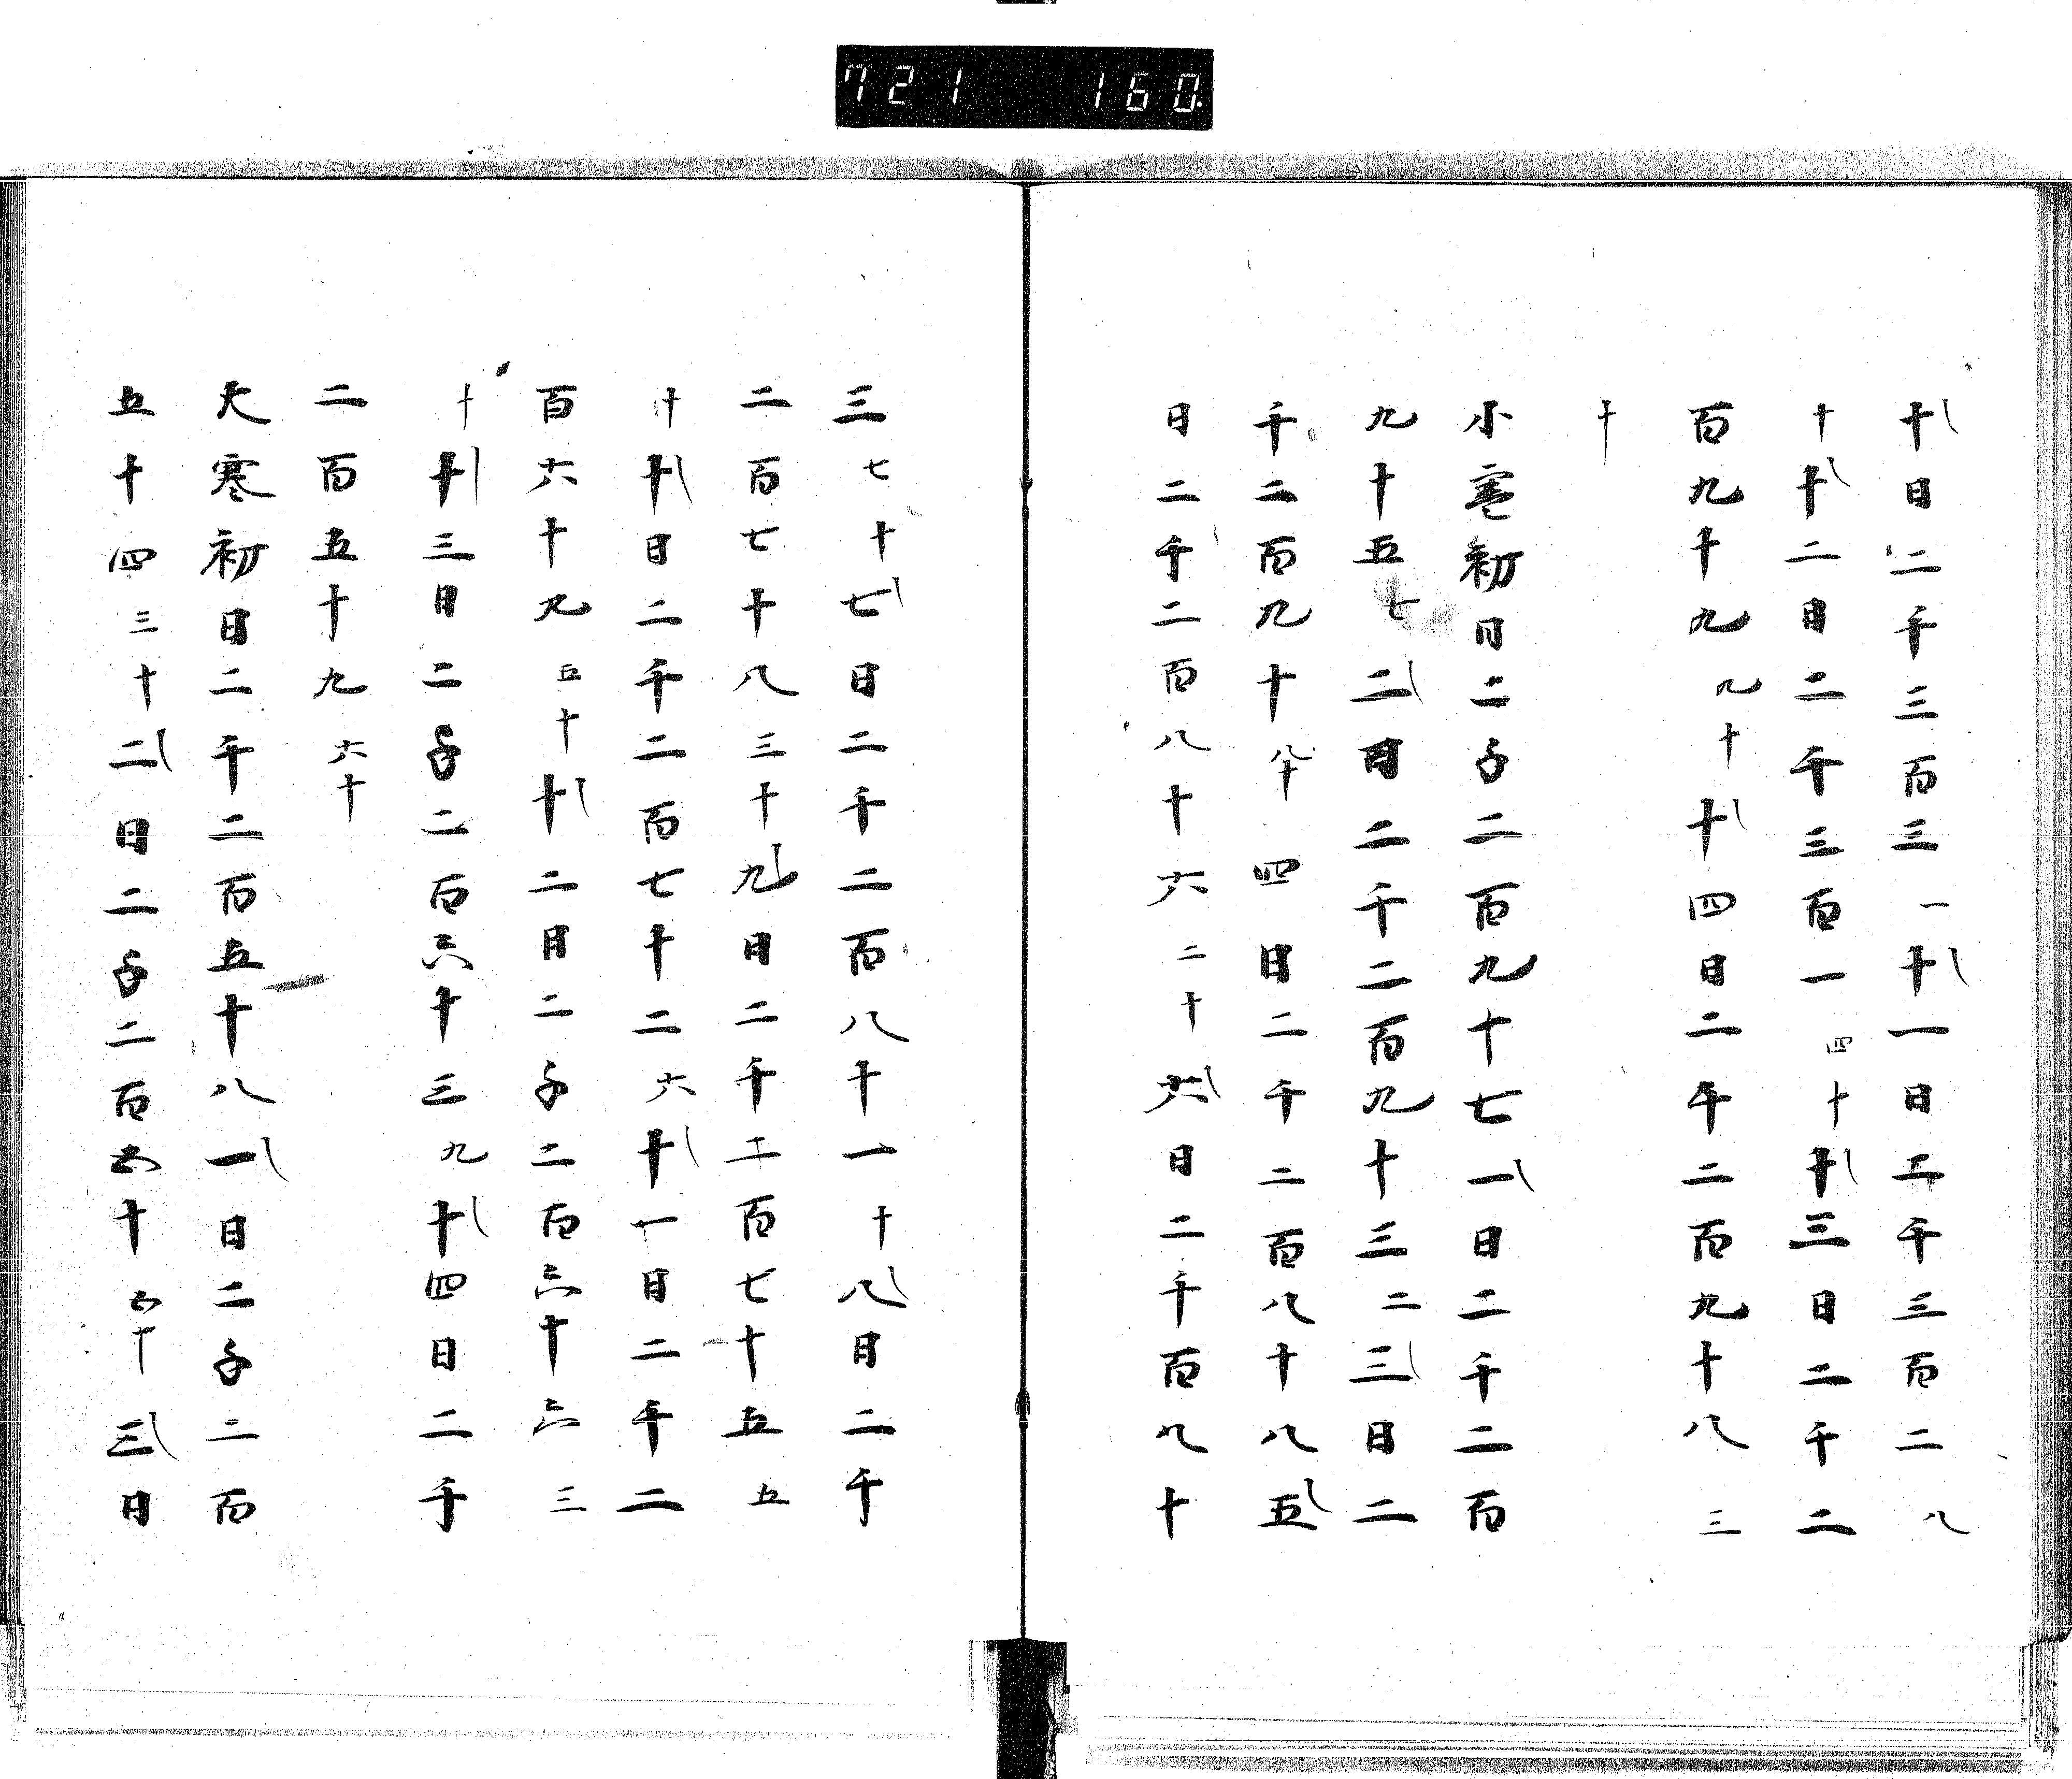 721 160
十日二千三百三一十一日二千三百二八
十十二日二千三百一四十十三日二千二
百九十九九十十四日二千二百九十八三
十
小寒初日二千二百九十七一日二千二百
九十五七二日二千二百九十三二三日二
千二百九十八十四日二千二百八十八五
日二千二百八十六二十六日二千百八十
三七十七日二千二百八十一十八日二千
二百七十八三十九日二千二百七十五五
十十日二千二百七十二六十一日二千二
百六十九五十十二日二千二百六十六三
十十三日二千二百六十三九十四日二千
二百五十九六十
大寒初日二千二百五十八一日二千二百
五十四三十二日二千二百五十五十三日